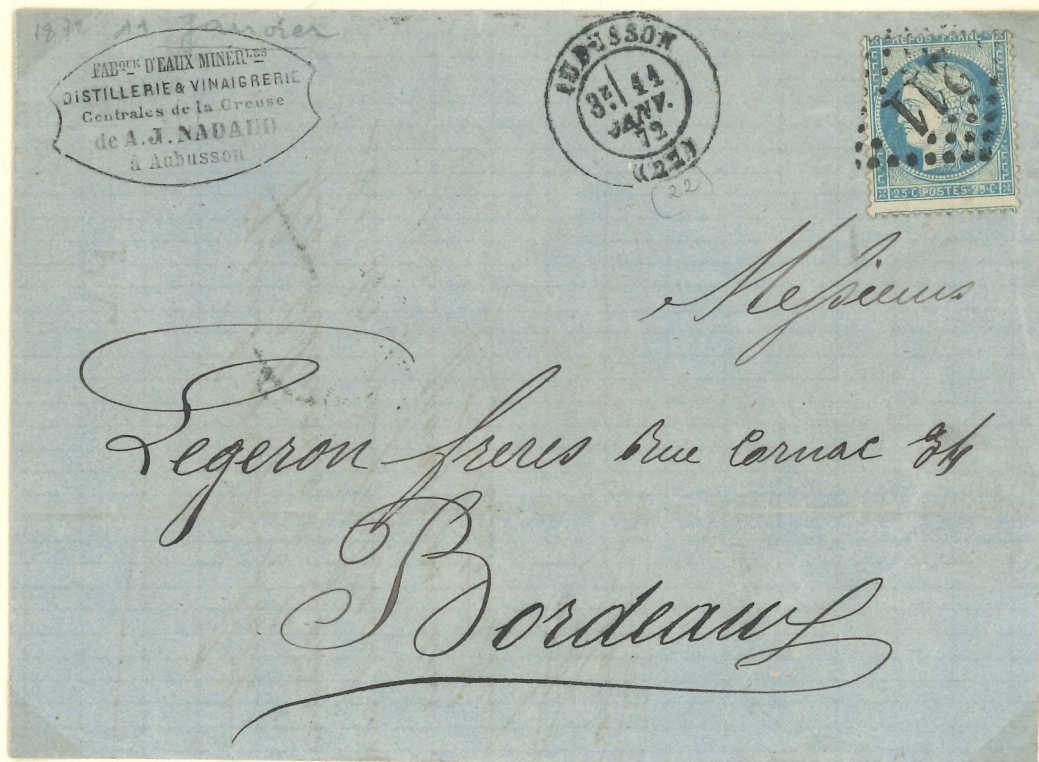 1872 11 Janvier
FABQUE D'EAUX MINÉRLES
DISTILLERIE & VINAIGRERIE
Centrales de la Creuse
de A. J. NADAUD
à Aubusson
AUBUSSON
3E 11
JANV.
72
(22)
(22)
REPUB. FRANC.
25·C POSTES 25·C
Messieurs
Legeron freres Rue Cornac
Bordeaux